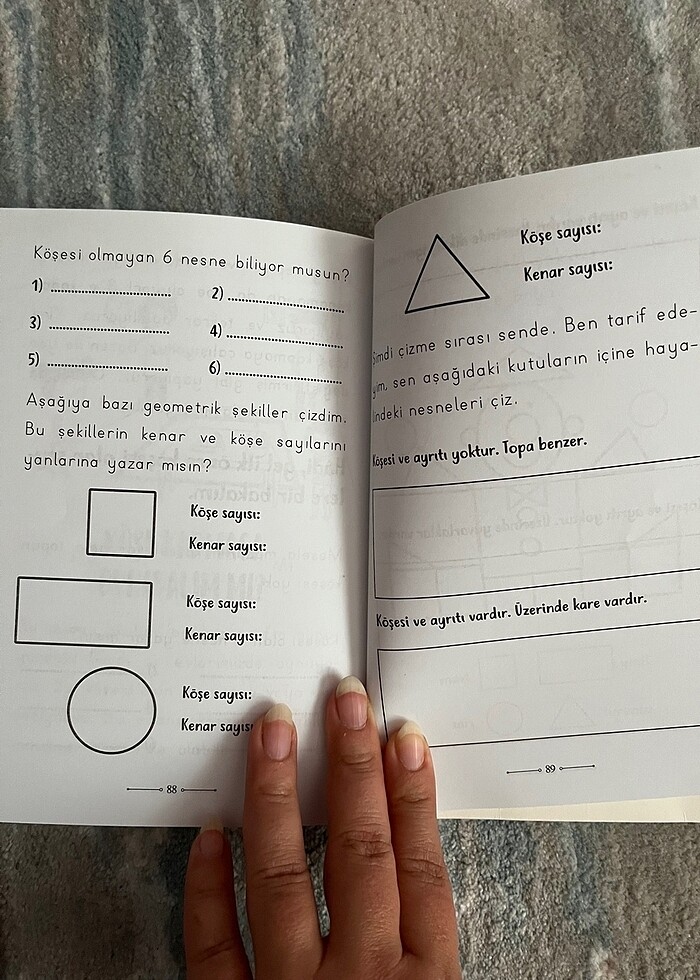 Köşesi olmayan 6 nesne biliyor musun?
1) ........................ 2) ........................
3) ........................ 4) ........................
5) ........................ 6) ........................
Aşağıya bazı geometrik şekiller çizdim.
Bu şekillerin kenar ve köşe sayılarını
yanlarına yazar mısın?
Köşe sayısı:
Kenar sayısı:
Köşe sayısı:
Kenar sayısı:
Köşe sayısı:
Kenar sayısı
88
Köşe sayısı:
Kenar sayısı:
Şimdi çizme sırası sende. Ben tarif ede-
yim, sen aşağıdaki kutuların içine haya-
lindeki nesneleri çiz.
Köşesi ve ayrıtı yoktur. Topa benzer.
Köşesi ve ayrıtı vardır. Üzerinde kare vardır.
89